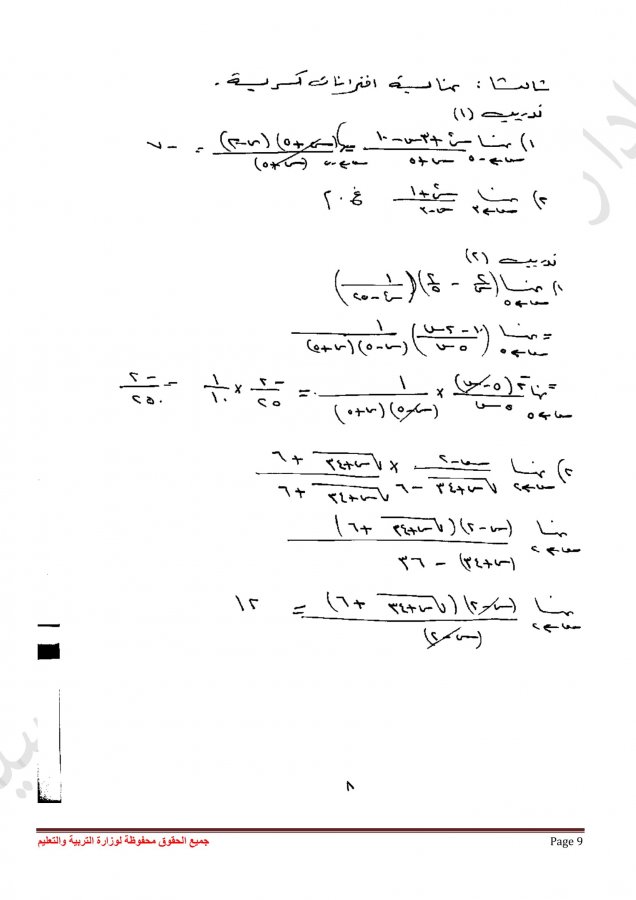 ثالثا : نهاية اقترانات كسرية .
تدريب (١)
١) نهــا س→-٥ (س٢ + ٣س - ١٠)/(س + ٥) = نهــا س→-٥ (س + ٥)(س - ٢)/(س + ٥) = -٧
٢) نهــا س→٢ (س٢ + ١)/(س - ٢) غ . م
تدريب (٢)
١) نهــا س→٥ (٢/س - ٢/٥)(١/(س٢ - ٢٥))
= نهــا س→٥ ((١٠ - ٢س)/(٥س)) ١/((س - ٥)(س + ٥))
= نهــا س→٥ -٢(٥ - س)/(٥س) × ١/((س - ٥)(س + ٥)) = -٢/٢٥ × ١/١٠ = -٢/٢٥٠
٢) نهــا س→٢ (س - ٢)/(√(س + ٣٤) - ٦) × (√(س + ٣٤) + ٦)/(√(س + ٣٤) + ٦)
نهــا س→٢ (س - ٢)(√(س + ٣٤) + ٦)/((س + ٣٤) - ٣٦)
نهــا س→٢ (س - ٢)(√(س + ٣٤) + ٦)/(س - ٢) = ١٢
٨
جميع الحقوق محفوظة لوزارة التربية والتعليم
Page 9